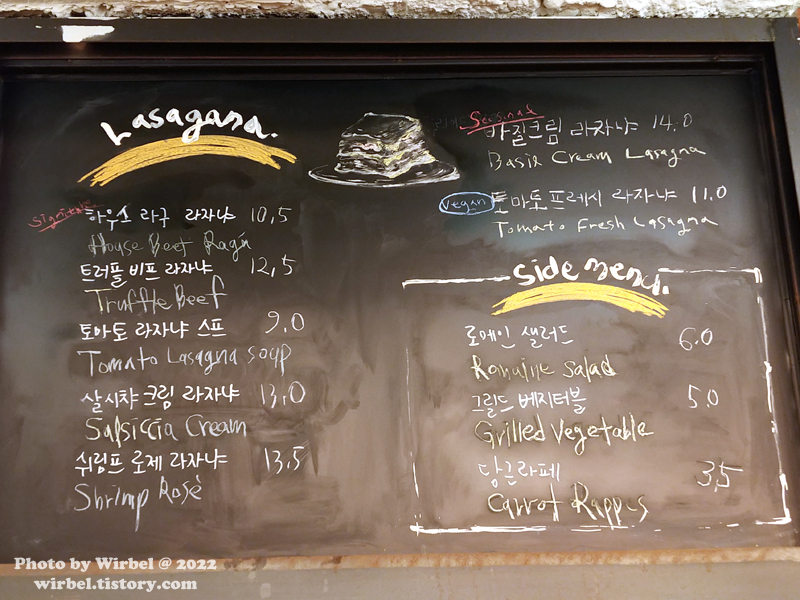 Lasagana.
Signiture
하우스 라구 라자냐 10,5
House Beef Ragu
트러플 비프 라자냐 12,5
Truffle Beef
토마토 라자냐 스프 9.0
Tomato Lasagna soup
살시챠 크림 라자냐 13,0
Salsiccia Cream
쉬림프 로제 라자냐 13.5
Shrimp Rosé
Seasonal
바질크림 라자냐 14.0
Basil Cream Lasagna
Vegan 토마토프레시 라자냐 11.0
Tomato Fresh Lasagna
Side menu.
로메인 샐러드 6.0
Romaine Salad
그릴드 베지터블 5.0
Grilled Vegetable
당근라페 3,5
Carrot Rappes
Photo by Wirbel @ 2022
wirbel.tistory.com